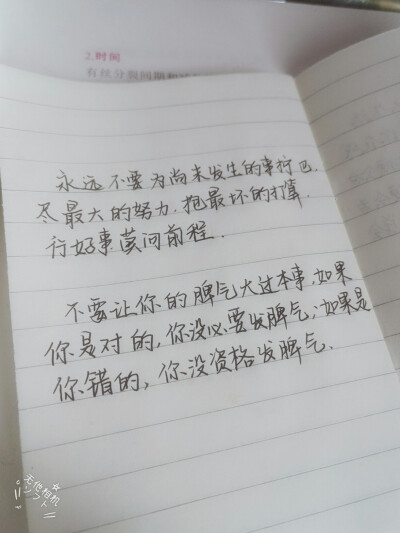 2.时间
有丝分裂间期和减
永远不要为尚未发生的事拧巴.
尽最大的努力.抱最坏的打算.
行好事莫问前程.
不要让你的脾气大过本事,如果
你是对的,你没必要发脾气,如果是
你错的,你没资格发脾气.
无他相机